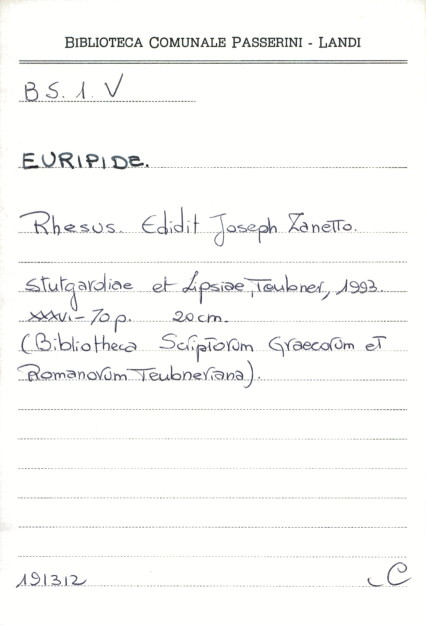 BIBLIOTECA COMUNALE PASSERINI - LANDI
BS. 1. V
EURIPIDE.
Rhesus. Edidit Joseph Zanetto.
Stutgardiae et Lipsiae, Teubner, 1993.
XXXVI - 70 p. 20 cm.
(Bibliotheca Scriptorum Graecorum et
Romanorum Teubneriana).
191312 C